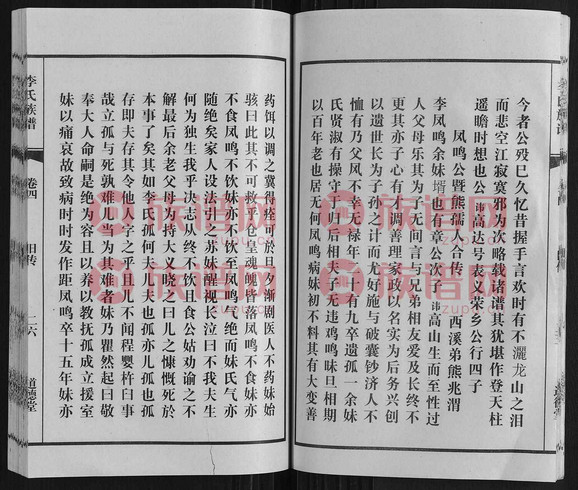 今者公殁已久忆昔握手言欢时有不灑龙山之泪
而悲空江寂寞邪为次略载诸谱其犹堪作登天柱
遥瞻时想也公讳高达号表义荣乡公行四子
凤鸣公暨熊孺人合传
西溪弟熊兆渭
李凤鸣余妹壻也有章公次子讳高山生而至性过
人父母乐其为子而间言与兄弟相友爱及长终不
更其亦子心有才调善理家政以名实为后务兴创
以遗世长为子孙之计而尤好施与破囊钞济人不
惜乃父凤不幸无禄年二十有九卒遗孤一余妹
氏贤淑有操守归后相夫子无违琴鸣味旦相期
以百年老也居无何凤鸣病妹初不料其有大变善
药饵以调之冀得痊可於旦夕渐剧医人不药妹始
骇曰此其不可救乎仓皇魂魄皆落凤鸣不食妹亦
不食凤鸣不饮妹亦不饮至凤鸣气绝而妹氏气亦
随绝矣家人设法引之苏妹醒视长泣曰不我夫生
何为独生我乎决志从终不饮且食公姑劝谕之不
解最后余老父母为持大义晓曰儿之慷慨死於
本事了矣其如李氏孤何夫儿夫也孤亦儿孤也孤
存即夫存其令他人字之乎且儿不闻程婴杵臼事
哉立孤与死孰难儿当为其难者妹乃瞿然起曰敬
奉大人命嗣是绝为容且以养以教抚孤成立援室
妹以痛哀故致病时时发作距凤鸣卒十五年妹亦
李氏族谱
卷四
旧传
二六
道德堂
族谱网